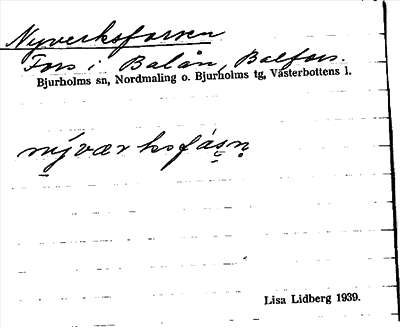 Nyverksforsen
Fors i Balån, Balfors.
Bjurholms sn, Nordmaling o. Bjurholms tg, Västerbottens l.
nýværksfásn
Lisa Lidberg 1939.